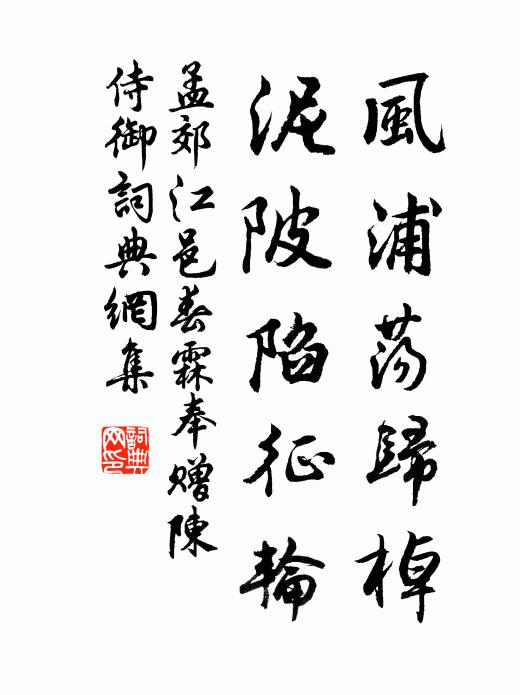 風浦蕩歸棹
泥陂陷征輪
孟郊江邑春霖奉贈陳
侍御詞典網集
詞典
网印